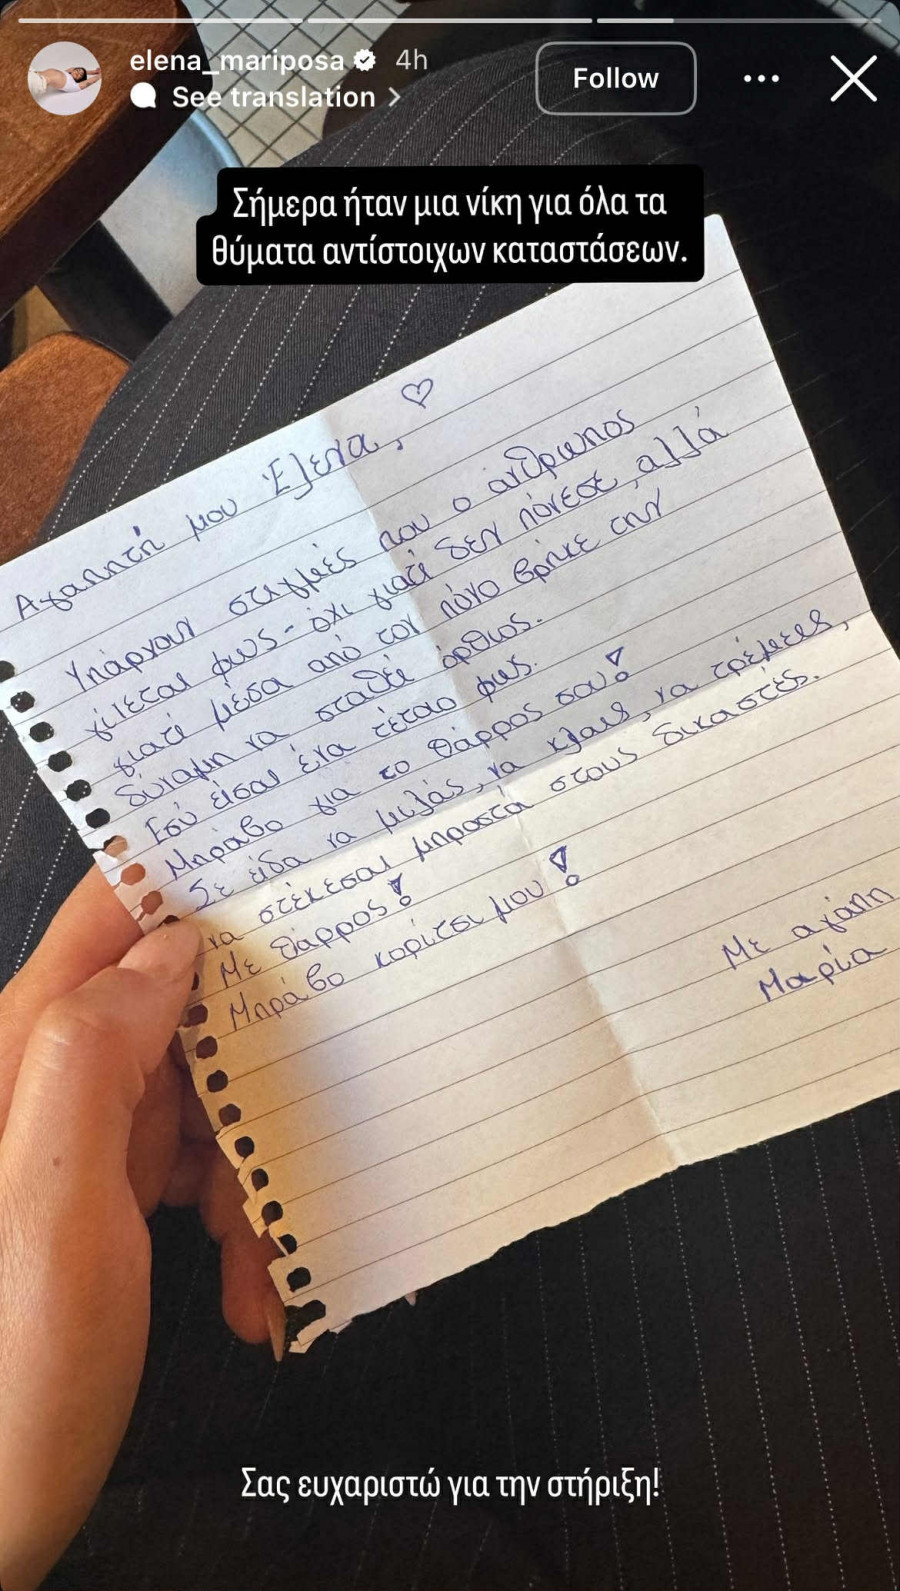 elena_mariposa 4h
See translation >
Follow
Σήμερα ήταν μια νίκη για όλα τα
θύματα αντίστοιχων καταστάσεων.
Αγαπητή μου Έλενα, ♡
Υπάρχουν στιγμές που ο άνθρωπος
γίνεται φως - όχι γιατί δεν πόνεσε, αλλά
γιατί μέσα από τον πόνο βρήκε την
δύναμη να σταθεί όρθιος.
Εσύ είσαι ένα τέτοιο φως.
Μπράβο για το θάρρος σου!
Σε είδα να μιλάς, να κλαις, να τρέμεις,
να στέκεσαι μπροστά στους δικαστές.
Με θάρρος!
Μπράβο κορίτσι μου!
Με αγάπη
Μαρία
Σας ευχαριστώ για την στήριξη!